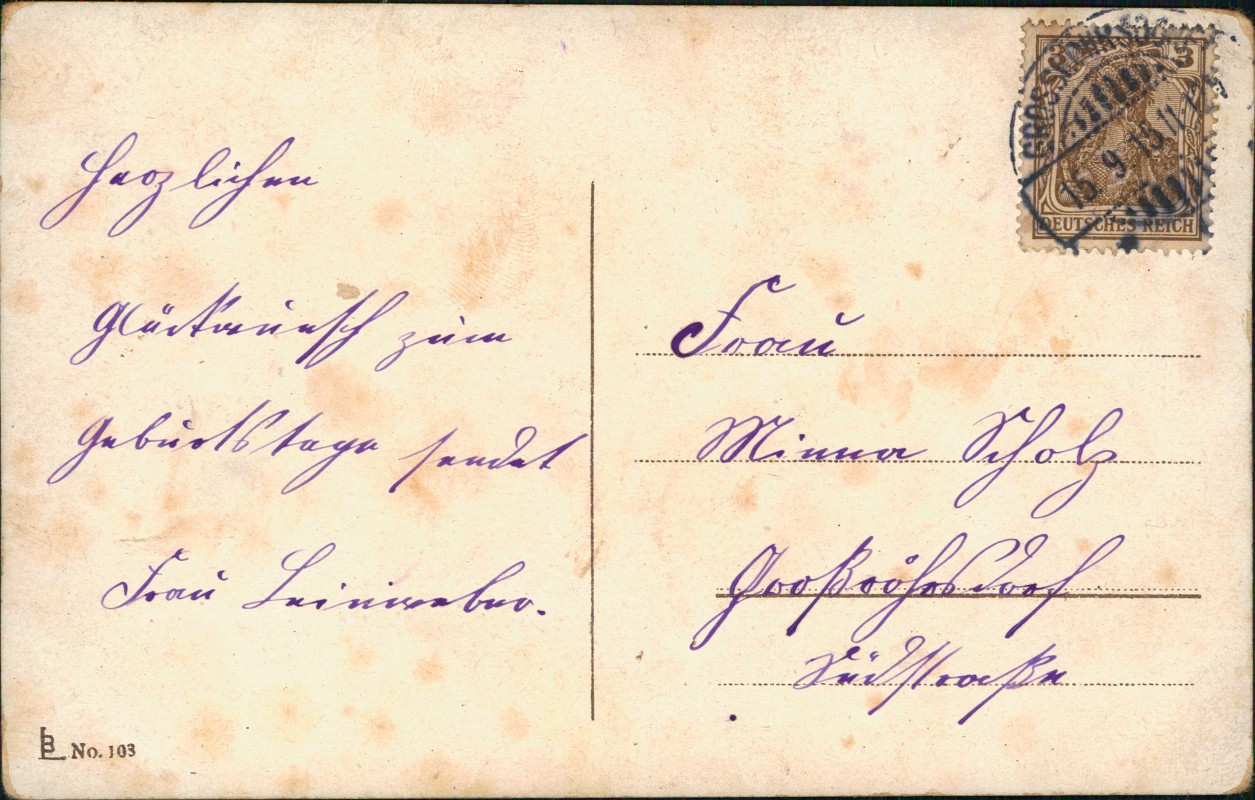 Herzlichen
Glückwunsch zum
Geburtstage sendet
Frau Leinweber.
No. 103
3 3
DEUTSCHES REICH
15 9 13
Frau
Minna Scholz
Großröhrsdorf
Südstraße